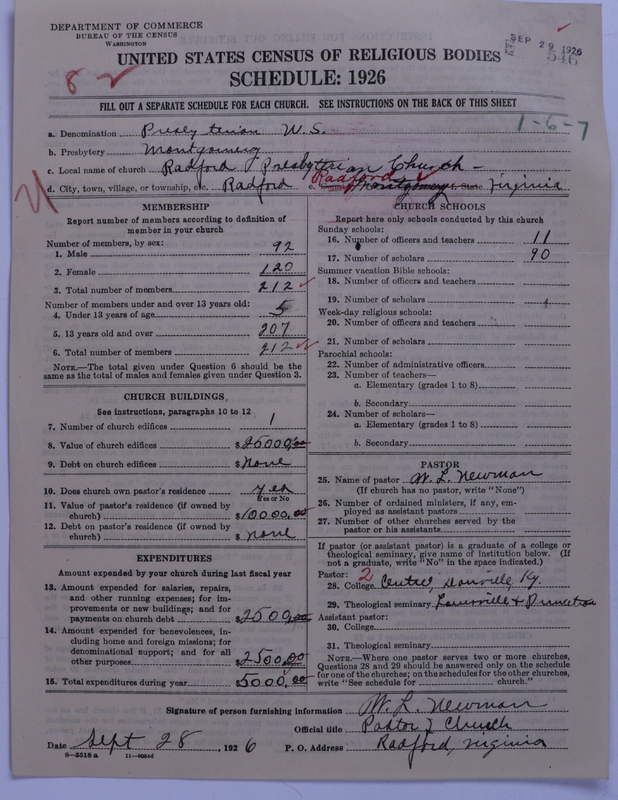 DEPARTMENT OF COMMERCE
BUREAU OF THE CENSUS
WASHINGTON
SEP 29 1926
546
UNITED STATES CENSUS OF RELIGIOUS BODIES
SCHEDULE: 1926
82
FILL OUT A SEPARATE SCHEDULE FOR EACH CHURCH. SEE INSTRUCTIONS ON THE BACK OF THIS SHEET
1-6-7
a. Denomination Presbyterian U.S.
b. Presbytery Montgomery
c. Local name of church Radford Presbyterian Church
Radford
d. City, town, village, or township, etc. Radford e. County Montgomery State Virginia
MEMBERSHIP
Report number of members according to definition of
member in your church
Number of members, by sex:
1. Male 92
2. Female 120
3. Total number of members 212
Number of members under and over 13 years old:
4. Under 13 years of age 5
5. 13 years old and over 207
6. Total number of members 212
NOTE.—The total given under Question 6 should be the
same as the total of males and females given under Question 3.
CHURCH BUILDINGS
See instructions, paragraphs 10 to 12
7. Number of church edifices 1
8. Value of church edifices $25000.00
9. Debt on church edifices $None
10. Does church own pastor's residence Yes
Yes or No
11. Value of pastor's residence (if owned by
church) $10000.00
12. Debt on pastor's residence (if owned by
church) $None
EXPENDITURES
Amount expended by your church during last fiscal year
13. Amount expended for salaries, repairs,
and other running expenses; for im-
provements or new buildings; and for
payments on church debt $2500.00
14. Amount expended for benevolences, in-
cluding home and foreign missions; for
denominational support; and for all
other purposes $2500.00
15. Total expenditures during year $5000.00
CHURCH SCHOOLS
Report here only schools conducted by this church
Sunday schools:
16. Number of officers and teachers 11
17. Number of scholars 90
Summer vacation Bible schools:
18. Number of officers and teachers
19. Number of scholars
Week-day religious schools:
20. Number of officers and teachers
21. Number of scholars
Parochial schools:
22. Number of administrative officers
23. Number of teachers—
a. Elementary (grades 1 to 8)
b. Secondary
24. Number of scholars—
a. Elementary (grades 1 to 8)
b. Secondary
PASTOR
25. Name of pastor W. L. Newman
(If church has no pastor, write "None")
26. Number of ordained ministers, if any, em-
ployed as assistant pastors
27. Number of other churches served by the
pastor or his assistants
If pastor (or assistant pastor) is a graduate of a college or
theological seminary, give name of institution below. (If
not a graduate, write "No" in the space indicated.)
Pastor: 2
28. College Centre, Danville, Ky.
29. Theological seminary Louisville & Princeton
Assistant pastor:
30. College
31. Theological seminary
NOTE.—Where one pastor serves two or more churches,
Questions 28 and 29 should be answered only on the schedule
for one of the churches; on the schedules for the other churches,
write "See schedule for church."
Signature of person furnishing information W. L. Newman
Official title Pastor of Church
Date Sept 28, 1926 P. O. Address Radford, Virginia
8—5518 a